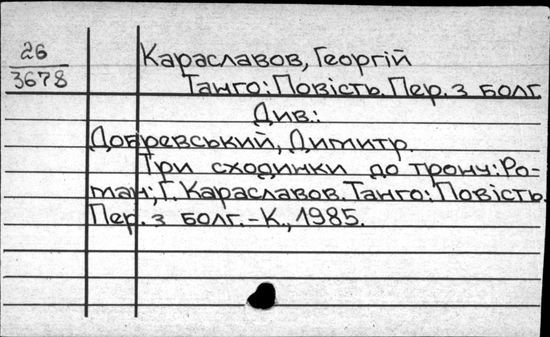 26
3678
Караславов, Георгій
Танго: Повість. Пер. з болг.
Див.:
Добревський, Димитр.
Три сходинки до трону: Ро-
ман; Г. Караславов. Танго: Повість.
Пер. з болг. - К., 1985.